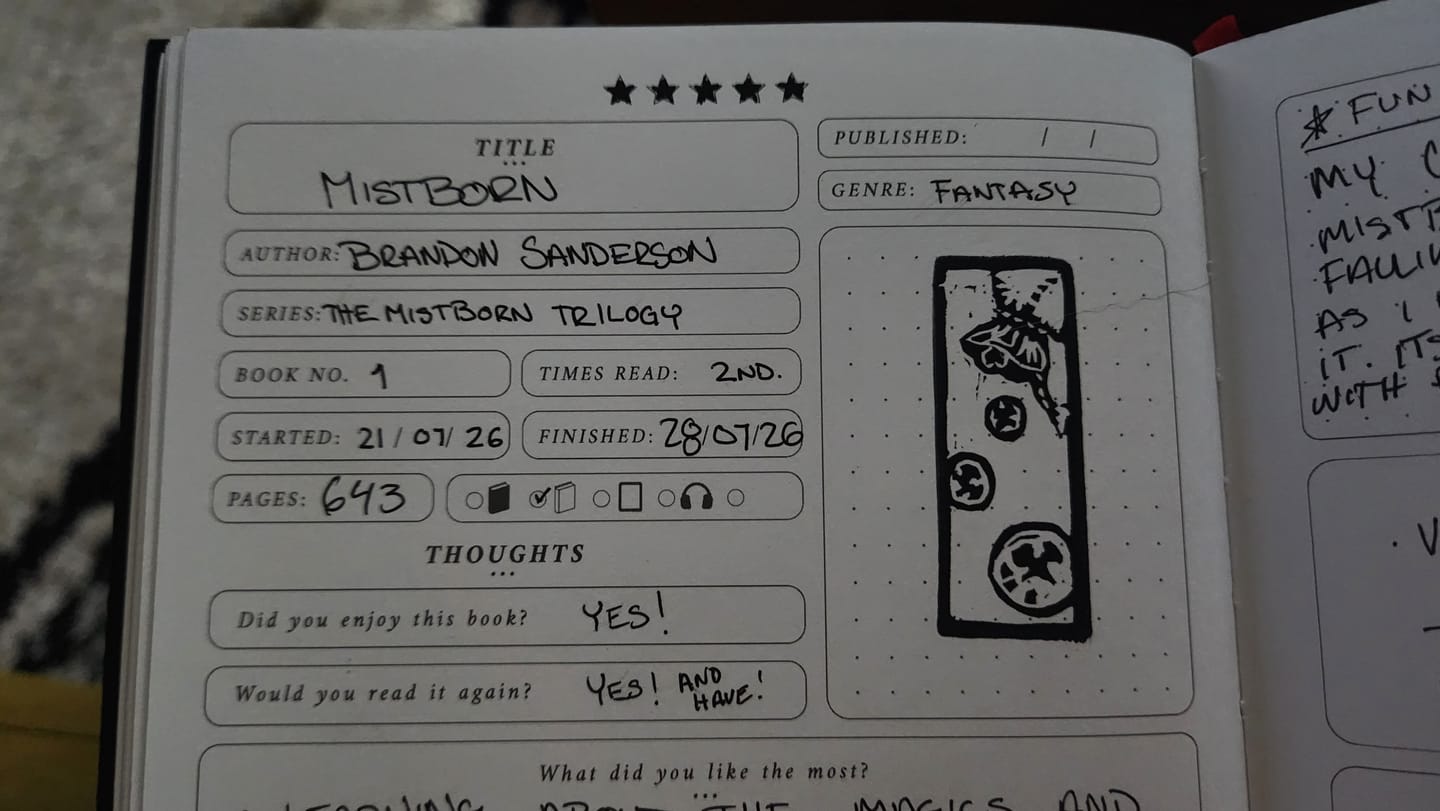 TITLE
MISTBORN
PUBLISHED: / /
GENRE: FANTASY
AUTHOR: BRANDON SANDERSON
SERIES: THE MISTBORN TRILOGY
BOOK NO. 1
TIMES READ: 2ND.
STARTED: 21/07/26
FINISHED: 28/07/26
PAGES: 643
THOUGHTS
Did you enjoy this book? YES!
Would you read it again? YES! AND HAVE!
What did you like the most?
ABOUT THE MAGICS AND
* FUN
MY
AS I
IT. ITS
WITH